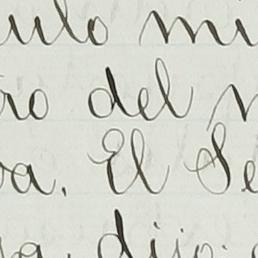 ulo mu
ro del
ra. El Se
dijo